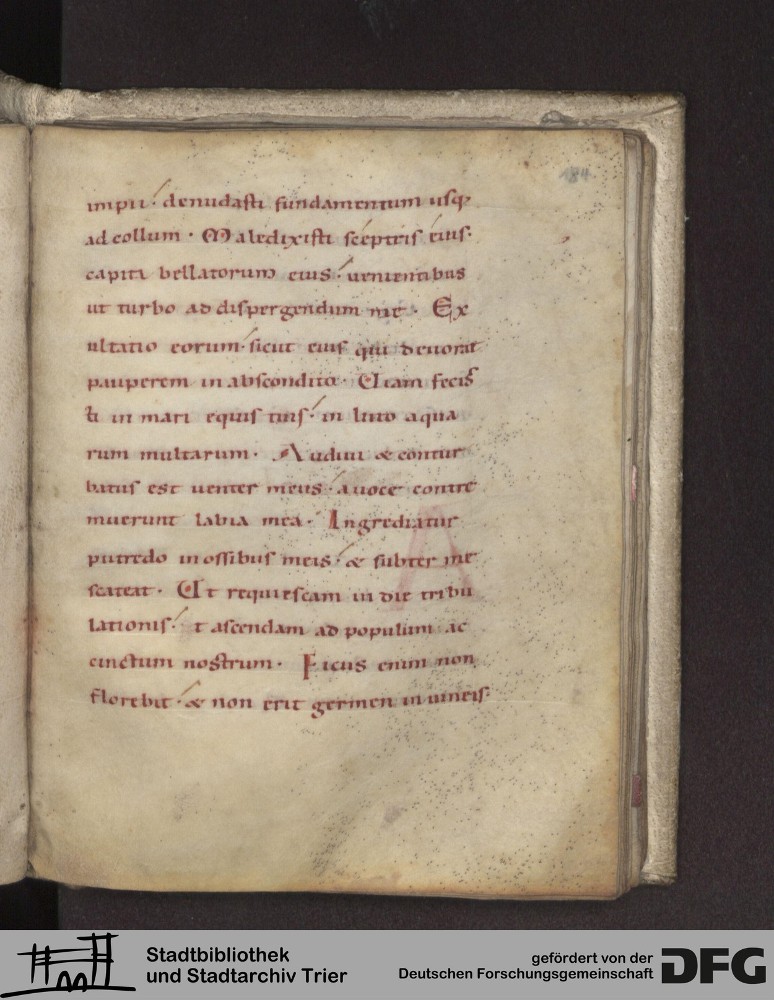 184
impii · denudasti fundamentum usq·
ad collum · Maledixisti sceptris eius·
capiti bellatorum eius · uenientibus
ut turbo ad dispergendum me · Ex
ultatio eorum · sicut eius qui deuorat
pauperem in abscondito · Uiam fecis
ti in mari equis tuis · in luto aqua
rum multarum · Audiui & contur
batus est uenter meus · a uoce contre
muerunt labia mea · Ingrediatur
putredo in ossibus meis · & subter me
scateat · Ut requiescam in die tribu
lationis · t ascendam ad populum ac
cinctum nostrum · Ficus enim non
florebit · & non erit germen in uineis·
Stadtbibliothek
und Stadtarchiv Trier
gefördert von der
Deutschen Forschungsgemeinschaft
DFG